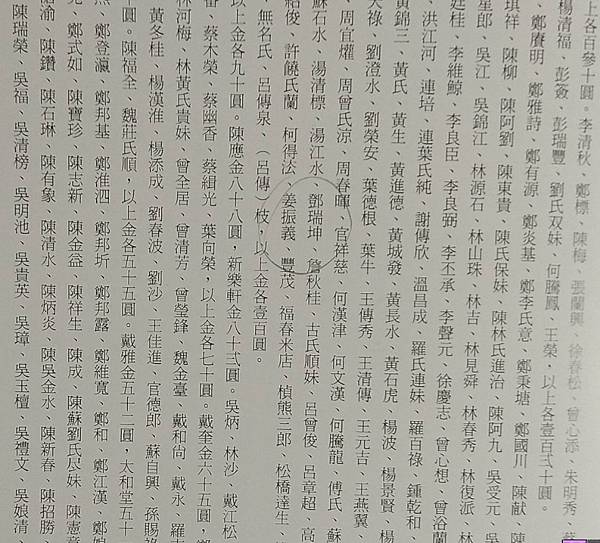 上各百參十圓。李清秋、鄭標、陳梅、張蘭興、徐春松、曾心添、朱明秀、蔡
楊清福、彭簽、彭瑞豐、劉氏双妹、何騰鳳、王榮，以上各壹百弍十圓。
鄭賡明、鄭雅詩、鄭有源、鄭炎基、鄭李氏意、鄭秉塘、鄭國川、陳猷、陳
琪祥、陳柳、陳阿劉、陳東貴、陳氏保妹、陳林氏進治、陳阿九、吳受元、吳
星郎、吳江、吳錦江、林源石、林山珠、林吉、林見舜、林春秀、林復派、林
廷桂、李維鯨、李良臣、李良弼、李丕承、李聲元、徐慶志、曾心想、曾浴蘭
、洪江河、連培、連葉氏純、謝傳欣、溫昌成、羅氏連妹、羅百祿、鍾乾和、
黃錦三、黃氏、黃生、黃進德、黃城發、黃長水、黃石虎、楊波、楊景賢、楊
天祿、劉澄水、劉榮安、葉德根、葉牛、王傳秀、王清傳、王元吉、王燕翼、
、周宜爟、周曾氏涼、周春暉、官祥慈、何漢津、何文漢、何騰龍、傅氏、蘇
蘇石水、湯清標、湯江水、鄧瑞坤、詹秋桂、古氏順妹、呂曾俊、呂章超、高
紹俊、許饒氏蘭、柯得法、姜振義、豐茂、福春米店、楨熊三郎、松橋達生、
，無名氏、呂傳泉、（呂傳）枝，以上金各壹百圓。
以上金各九十圓。陳應金八十八圓，新樂軒金八十弍圓。吳炳、林沙、戴江松
香、蔡木榮、蔡幽香、蔡緝光、葉向榮，以上金各七十圓。戴奎金六十五圓
林河梅、林黃氏貴妹、曾全居、曾清芳、曾瑩鋒、魏金臺、戴和尙、戴永、羅
、黃冬桂、楊漢淮、楊添成、劉春波、劉沙、王佳進、官德郎、蘇自興、孫賜
十圓。陳福全、魏莊氏順，以上金各五十五圓。戴雅金五十二圓，大和堂五十
、鄭登瀛、鄭邦基、鄭淮泗、鄭邦圻、鄭邦露、鄭維寬、鄭和、鄭江漢、鄭
、鄭式如、陳寶珍、陳志新、陳金益、陳祥生、陳成、陳蘇劉氏尽妹、陳憲
渝、陳鑽、陳石琳、陳有象、陳清水、陳炳炎、陳吳金水、陳新春、陳招勝、
陳瑞榮、吳福、吳清榜、吳明池、吳貴英、吳璋、吳玉檀、吳禮文、吳娘清